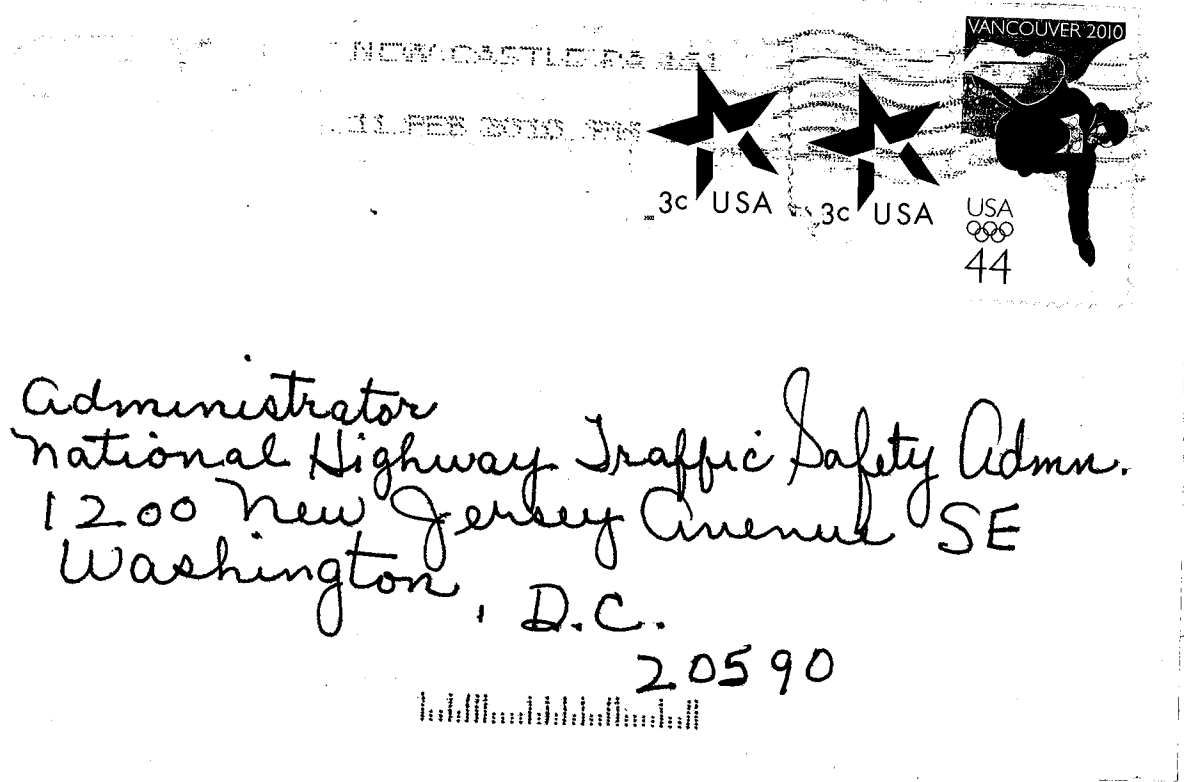 NEW CASTLE PA 161
11 FEB 2010 PM
3c USA
3c USA
VANCOUVER 2010
USA
44
Administrator
National Highway Traffic Safety Admn.
1200 New Jersey Avenue SE
Washington, D.C.
20590